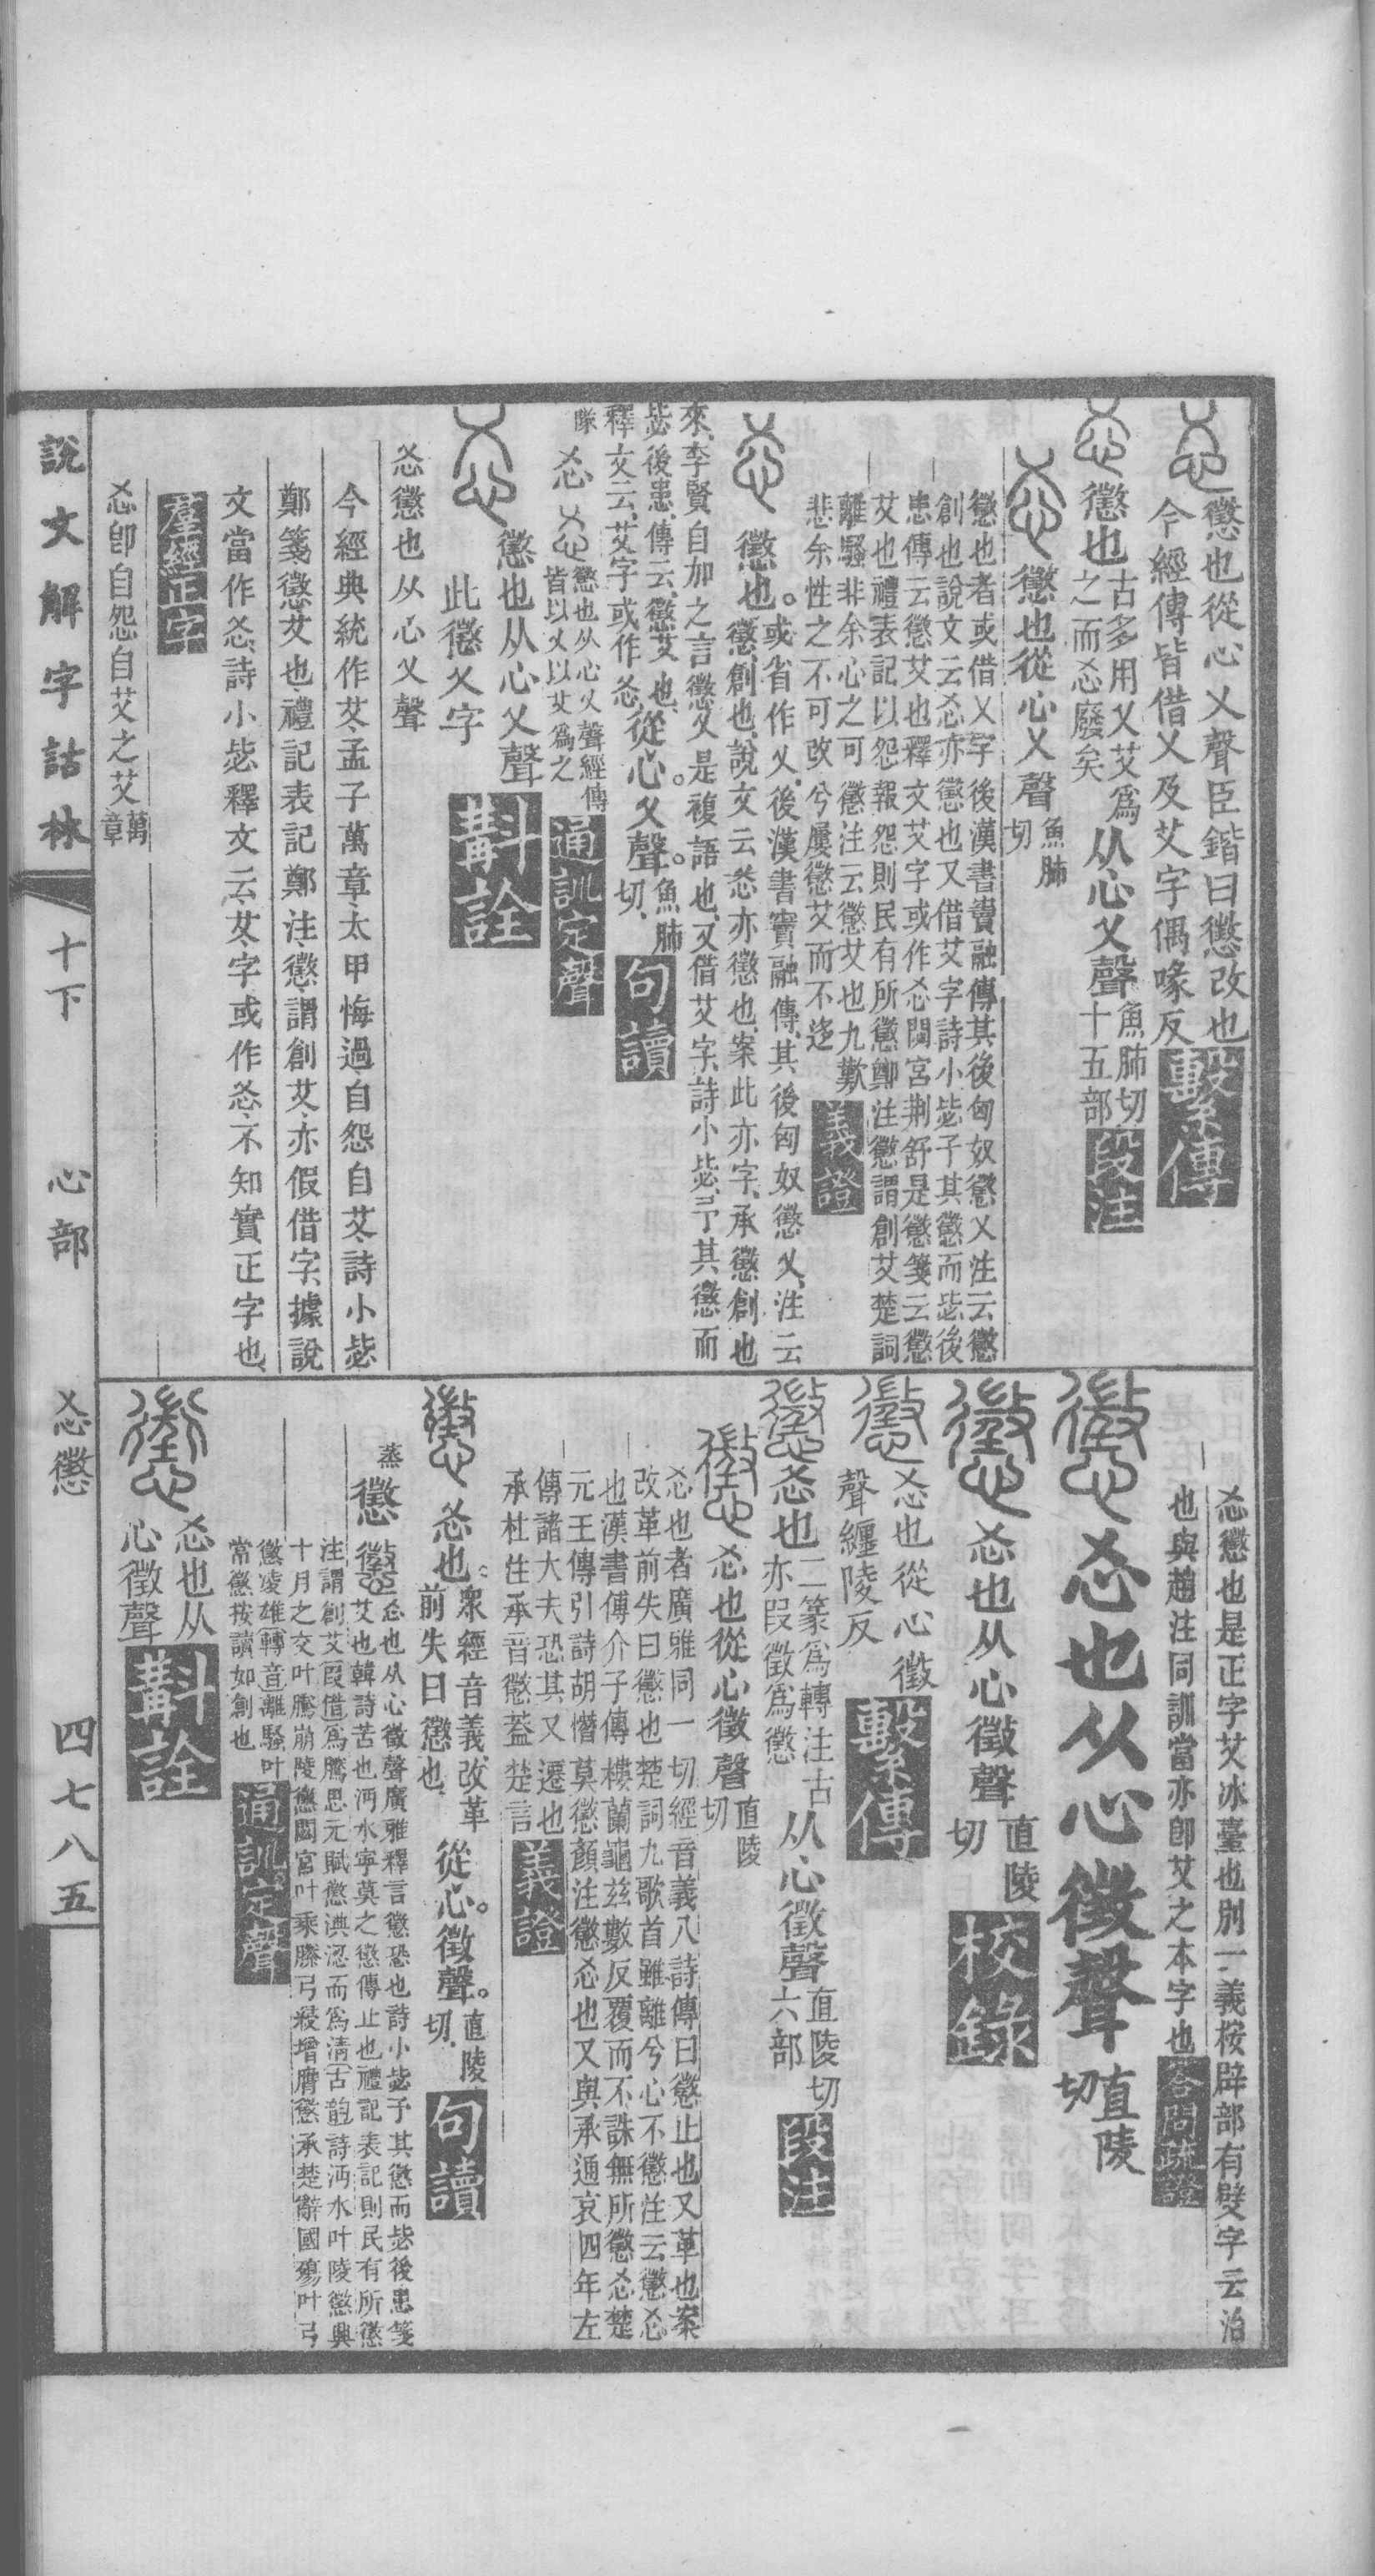 懲也從心乂聲臣鍇曰懲改也
今經傳皆借乂及艾字偶喙反 繫傳
懲也 古多用乂艾爲
之而㣻廢矣 从心乂聲 魚肺切
十五部 段注
懲也從心乂聲 魚肺
切
懲也者或借乂字後漢書竇融傳其後匈奴懲乂注云懲
創也說文云㣻亦懲也又借艾字詩小毖予其懲而毖後
患傳云懲艾也釋文艾字或作㣻閟宮荆舒是懲箋云懲
艾也禮表記以怨報怨則民有所懲鄭注懲謂創艾楚詞
離騷非余心之可懲注云懲艾也九歎
悲余性之不可改兮屢懲艾而不迻 義證
懲也。或省作乂、後漢書竇融傳、其後匈奴懲乂、注云
懲創也、說文云㣻亦懲也、案此亦字、承懲創也
來、李賢自加之言懲乂是複語也、又借艾字、詩小毖、予其懲而
毖後患、傳云、懲艾也、
釋文云、艾字或作㣻、從心。乂聲。 魚肺
切、 句讀
隊 㣻 懲也从心乂聲經傳
皆以乂以艾爲之 通訓定聲
懲也从心乂聲
此懲乂字 斠詮
㣻懲也从心乂聲
今經典統作艾、孟子萬章、太甲悔過、自怨自艾、詩小毖
鄭箋、懲艾也、禮記表記鄭注、懲謂創艾、亦假借字、據說
文當作㣻、詩小毖釋文云、艾字或作㣻、不知實正字也、
羣經正字
㣻卽自怨自艾之艾 萬
章
說文解字詁林 十下 心部 㣻懲 四七八五
㣻懲也是正字艾冰臺也別一義桉辟部有嬖字云治
也與趙注同訓當亦卽艾之本字也 答問疏證
㣻也从心徵聲 直陵
切
㣻也从心徵聲 直陵
切 校錄
㣻也從心徵
聲纏陵反 繫傳
㣻也 二篆爲轉注古
亦叚徵爲懲 从心徵聲 直陵切
六部 段注
㣻也從心徵聲 直陵
切
㣻也者廣雅同一切經音義八詩傳曰懲止也又革也案
改革前失曰懲也楚詞九歌首雖離兮心不懲注云懲㣻
也漢書傅介子傳樓蘭龜茲數反覆而不誅無所懲㣻楚
元王傳引詩胡憯莫懲顏注懲㣻也又與承通哀四年左
傳諸大夫恐其又遷也
承杜注承音懲葢楚言 義證
㣻也。衆經音義、改革
前失曰懲也、從心。徵聲。 直陵
切、 句讀
蒸 懲 㣻也从心徵聲廣雅釋言懲恐也詩小毖予其懲而毖後患箋
艾也韓詩苦也沔水寧莫之懲傳止也禮記表記則民有所懲
注謂創艾叚借爲騰思元賦懲淟涊而爲清古韻詩沔水叶陵懲興
十月之交叶騰崩陵懲閟宮叶乘滕弓綅增膺懲承楚辭國殤叶弓
懲凌雄轉音離騷叶
常懲按讀如創也 通訓定聲
㣻也从
心徵聲 斠詮